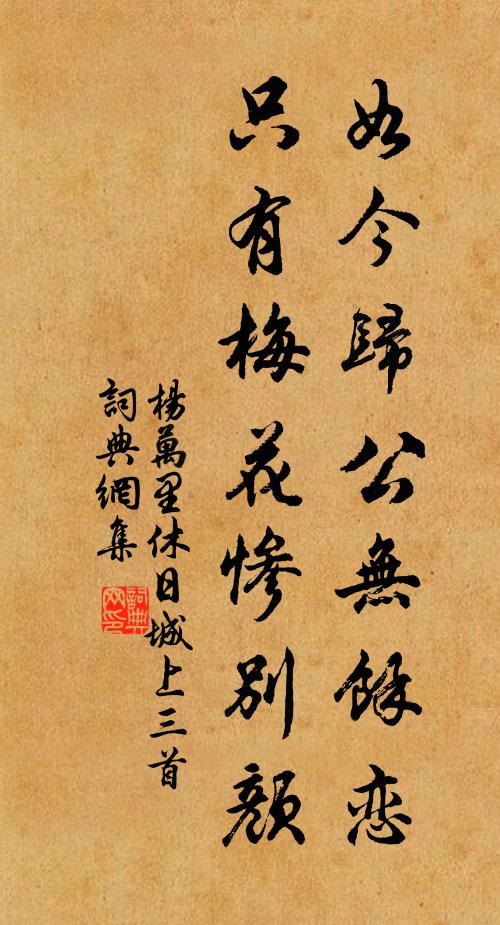 如今歸公無餘恋
只有梅花慘別顔
楊萬里休日城上三首
詞典網集
詞典网印